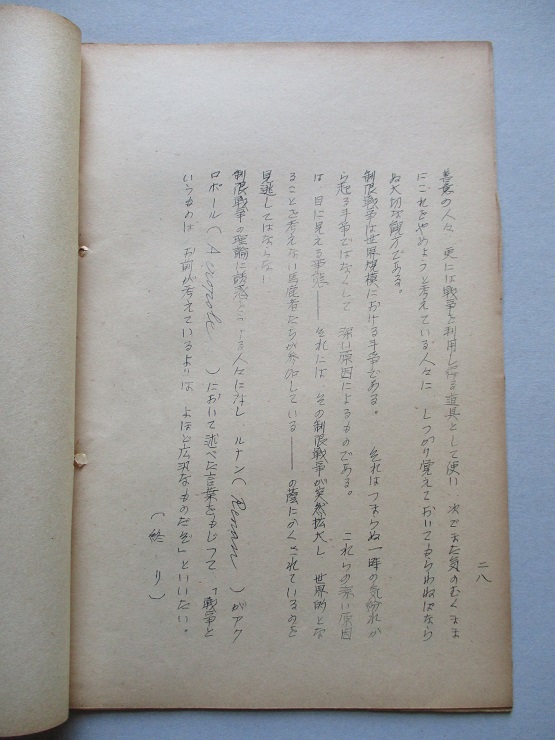 二八
善意の人々、更には戦争を利用し得る道具として使い、次でまた気のむくまま
にこれをやめようと考えている人々に、しっかり覚えておいてもらわねばなら
ぬ大切な観方である。
制限戦争は世界規模における斗争である。それはつまらぬ一時の気紛れか
ら起る斗争ではなくして、深い原因によるものである。これらの深い原因
は、目に見える事態——それには、その制限戦争が突然拡大し、世界的とな
ることを考えない馬鹿者たちが参加している——の蔭にかくされているのを
見逃してはならない。
制限戦争の理論に誘惑されている人々になし、ルナン(Renan)がアク
ロポール(Acropole)において述べた言葉をもじって、「戦争と
いうものは、お前が考えているよりは、よほど広汎なものだぞ」といいたい。
(終り)